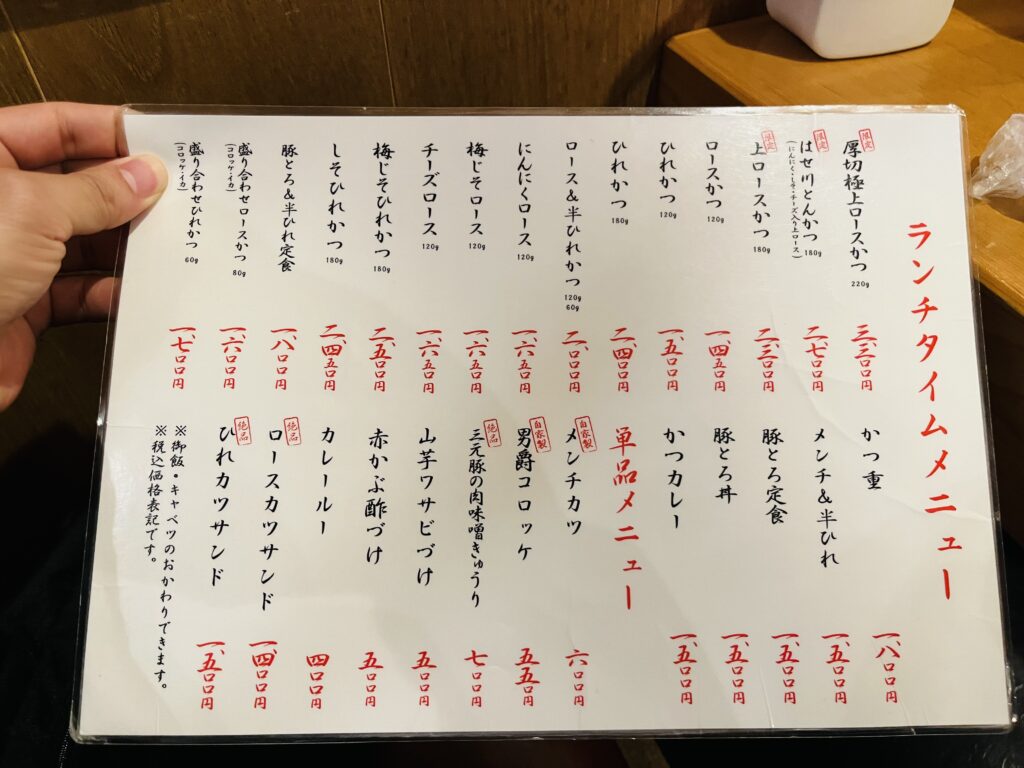 ランチタイムメニュー
限定 厚切極上ロースかつ 220g 三、三〇〇円
限定 はせ川とんかつ 180g 二、七〇〇円
(にんにく・しそ・チーズ入り上ロース)
限定 上ロースかつ 180g 二、三〇〇円
ロースかつ 120g 一、四五〇円
ひれかつ 120g 一、五〇〇円
ひれかつ 180g 二、四〇〇円
ロース&半ひれかつ 120g 60g 二、〇〇〇円
にんにくロース 120g 一、六五〇円
梅じそロース 120g 一、六五〇円
チーズロース 120g 一、六五〇円
梅じそひれかつ 180g 二、五〇〇円
しそひれかつ 180g 二、四五〇円
豚とろ&半ひれ定食 一、八〇〇円
盛り合わせロースかつ 80g 一、六〇〇円
(コロッケ・イカ)
盛り合わせひれかつ 60g 一、七〇〇円
(コロッケ・イカ)
かつ重 一、八〇〇円
メンチ&半ひれ 一、五〇〇円
豚とろ定食 一、五〇〇円
豚とろ丼 一、五〇〇円
かつカレー 一、五〇〇円
単品メニュー
自家製 メンチカツ 六〇〇円
自家製 男爵コロッケ 五五〇円
絶品 三元豚の肉味噌きゅうり 七〇〇円
山芋ワサビづけ 五〇〇円
赤かぶ酢づけ 五〇〇円
カレールー 四〇〇円
絶品 ロースカツサンド 一、四〇〇円
絶品 ひれカツサンド 一、五〇〇円
※御飯・キャベツのおかわりできます。
※税込価格表記です。